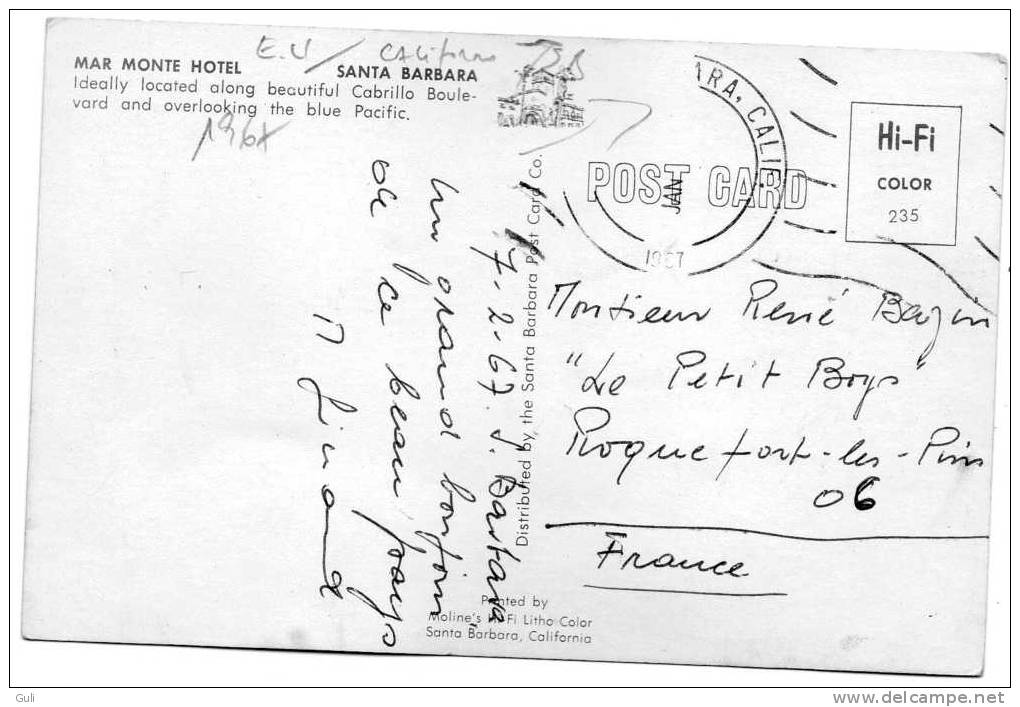 E.U / CALIFORN
MAR MONTE HOTEL SANTA BARBARA
Ideally located along beautiful Cabrillo Boule-
vard and overlooking the blue Pacific.
7-2-67. S. Barbara
Un grand bonjour
de ce beau pays
Distributed by the Santa Barbara Post Card Co.
Printed by
Moline's Hi-Fi Litho Color
Santa Barbara, California
ARA, CALIF.
JAN
1967
POST CARD
Hi-Fi
COLOR
235
Monsieur René Bazin
"Le Petit Boys"
Roquefort-les-Pins
06
France
Guli
www.delcampe.net